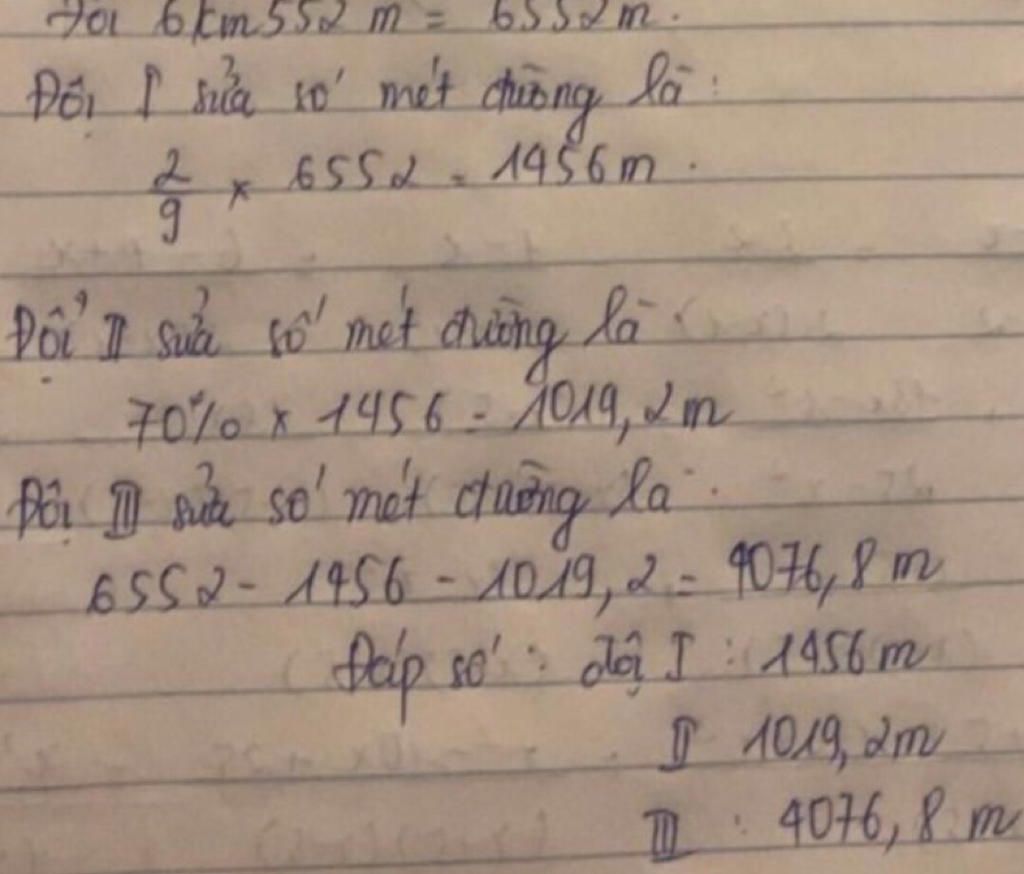 Đổi 6km552m = 6552m.
Đội I sửa số mét đường là:
2/9 × 6552 = 1456m.
Đội II sửa số mét đường là:
70% × 1456 = 1019,2m
Đội III sửa số mét đường là.
6552 - 1456 - 1019,2 = 4076,8m
Đáp số: đội I : 1456m
II 1019,2m
III : 4076,8 m